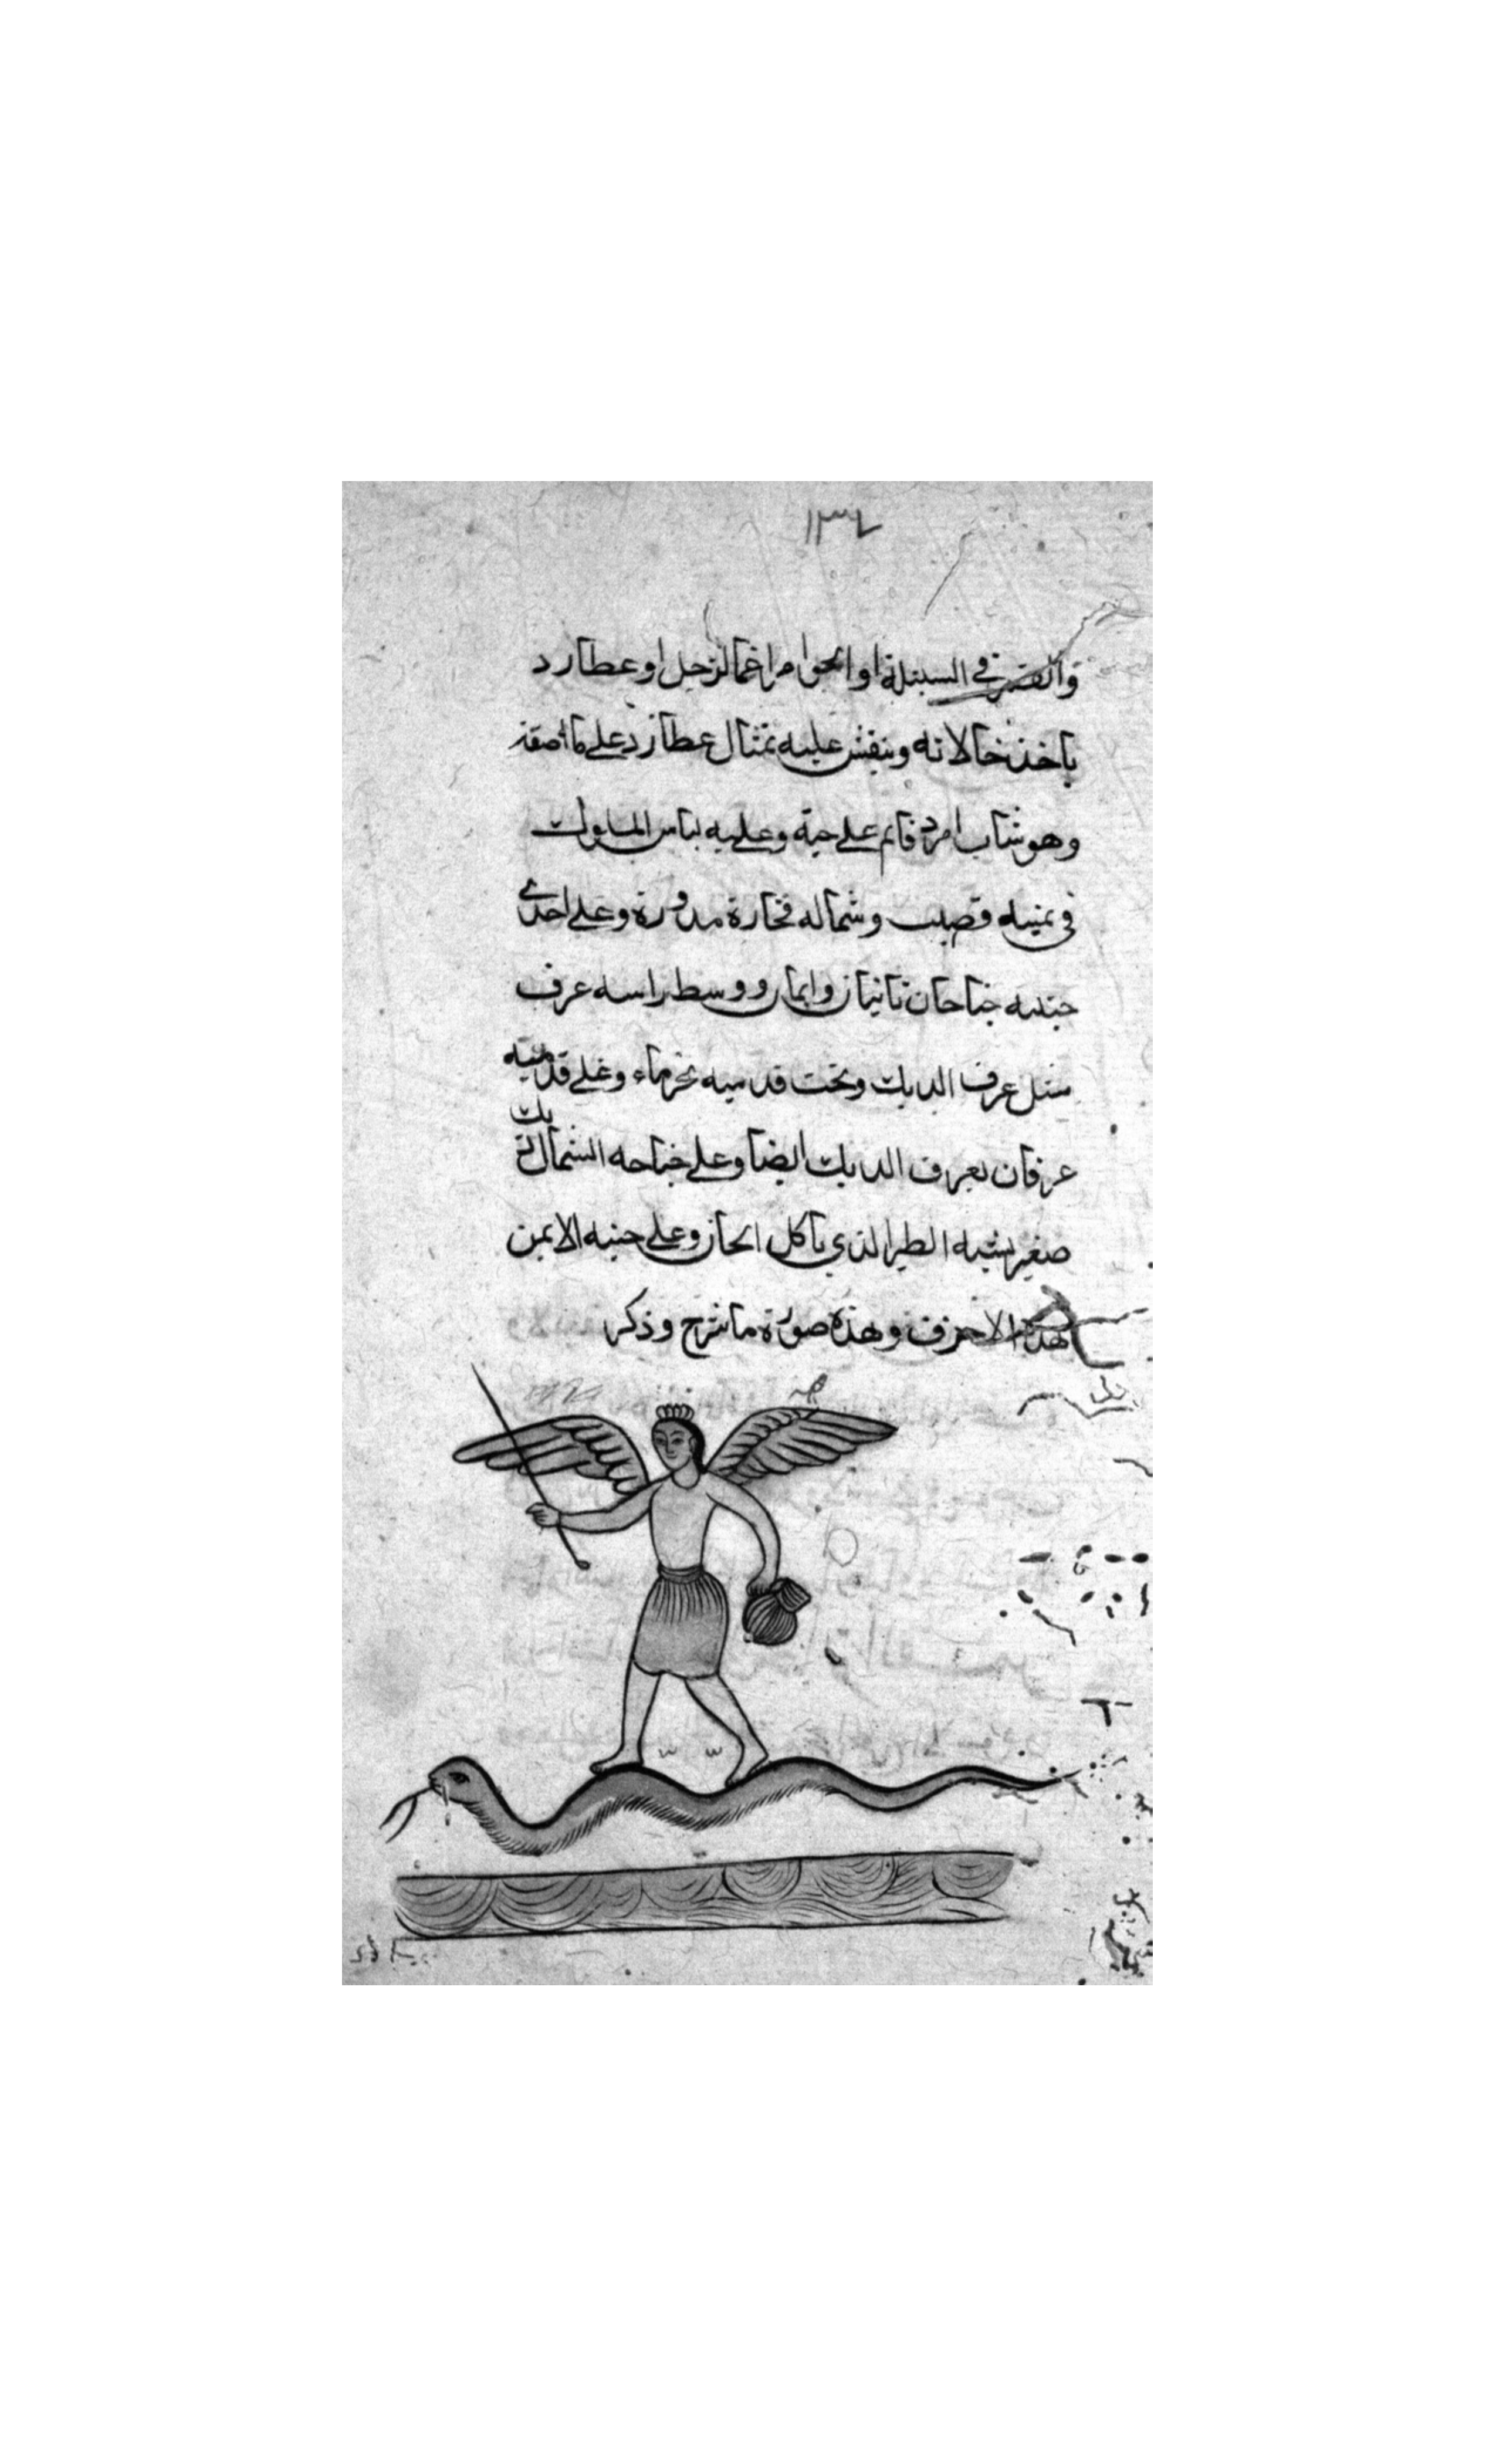 ١٣٤
والقمر في السنبلة او الجوا مراغما لزحل او عطارد
ياخذ خالانه وينقش عليه تمثال عطارد على ما اصفه
وهو شاب امرد قائم على حية وعليه لباس الملوك
في يمينه قضيب وشماله فخارة مدورة وعلى احدى
جنبيه جناحان وسط راسه عرف
مثل عرف الديك وتحت قدميه بحر ماء وعلى قدميه
عرفان كعرف الديك ايضا وعلى جناحه الشمال ديك
صغير يشبه الطير الذي ياكل وعلى جنبه الايمن
هذه الاحرف وهذه صورة ما شرح وذكر